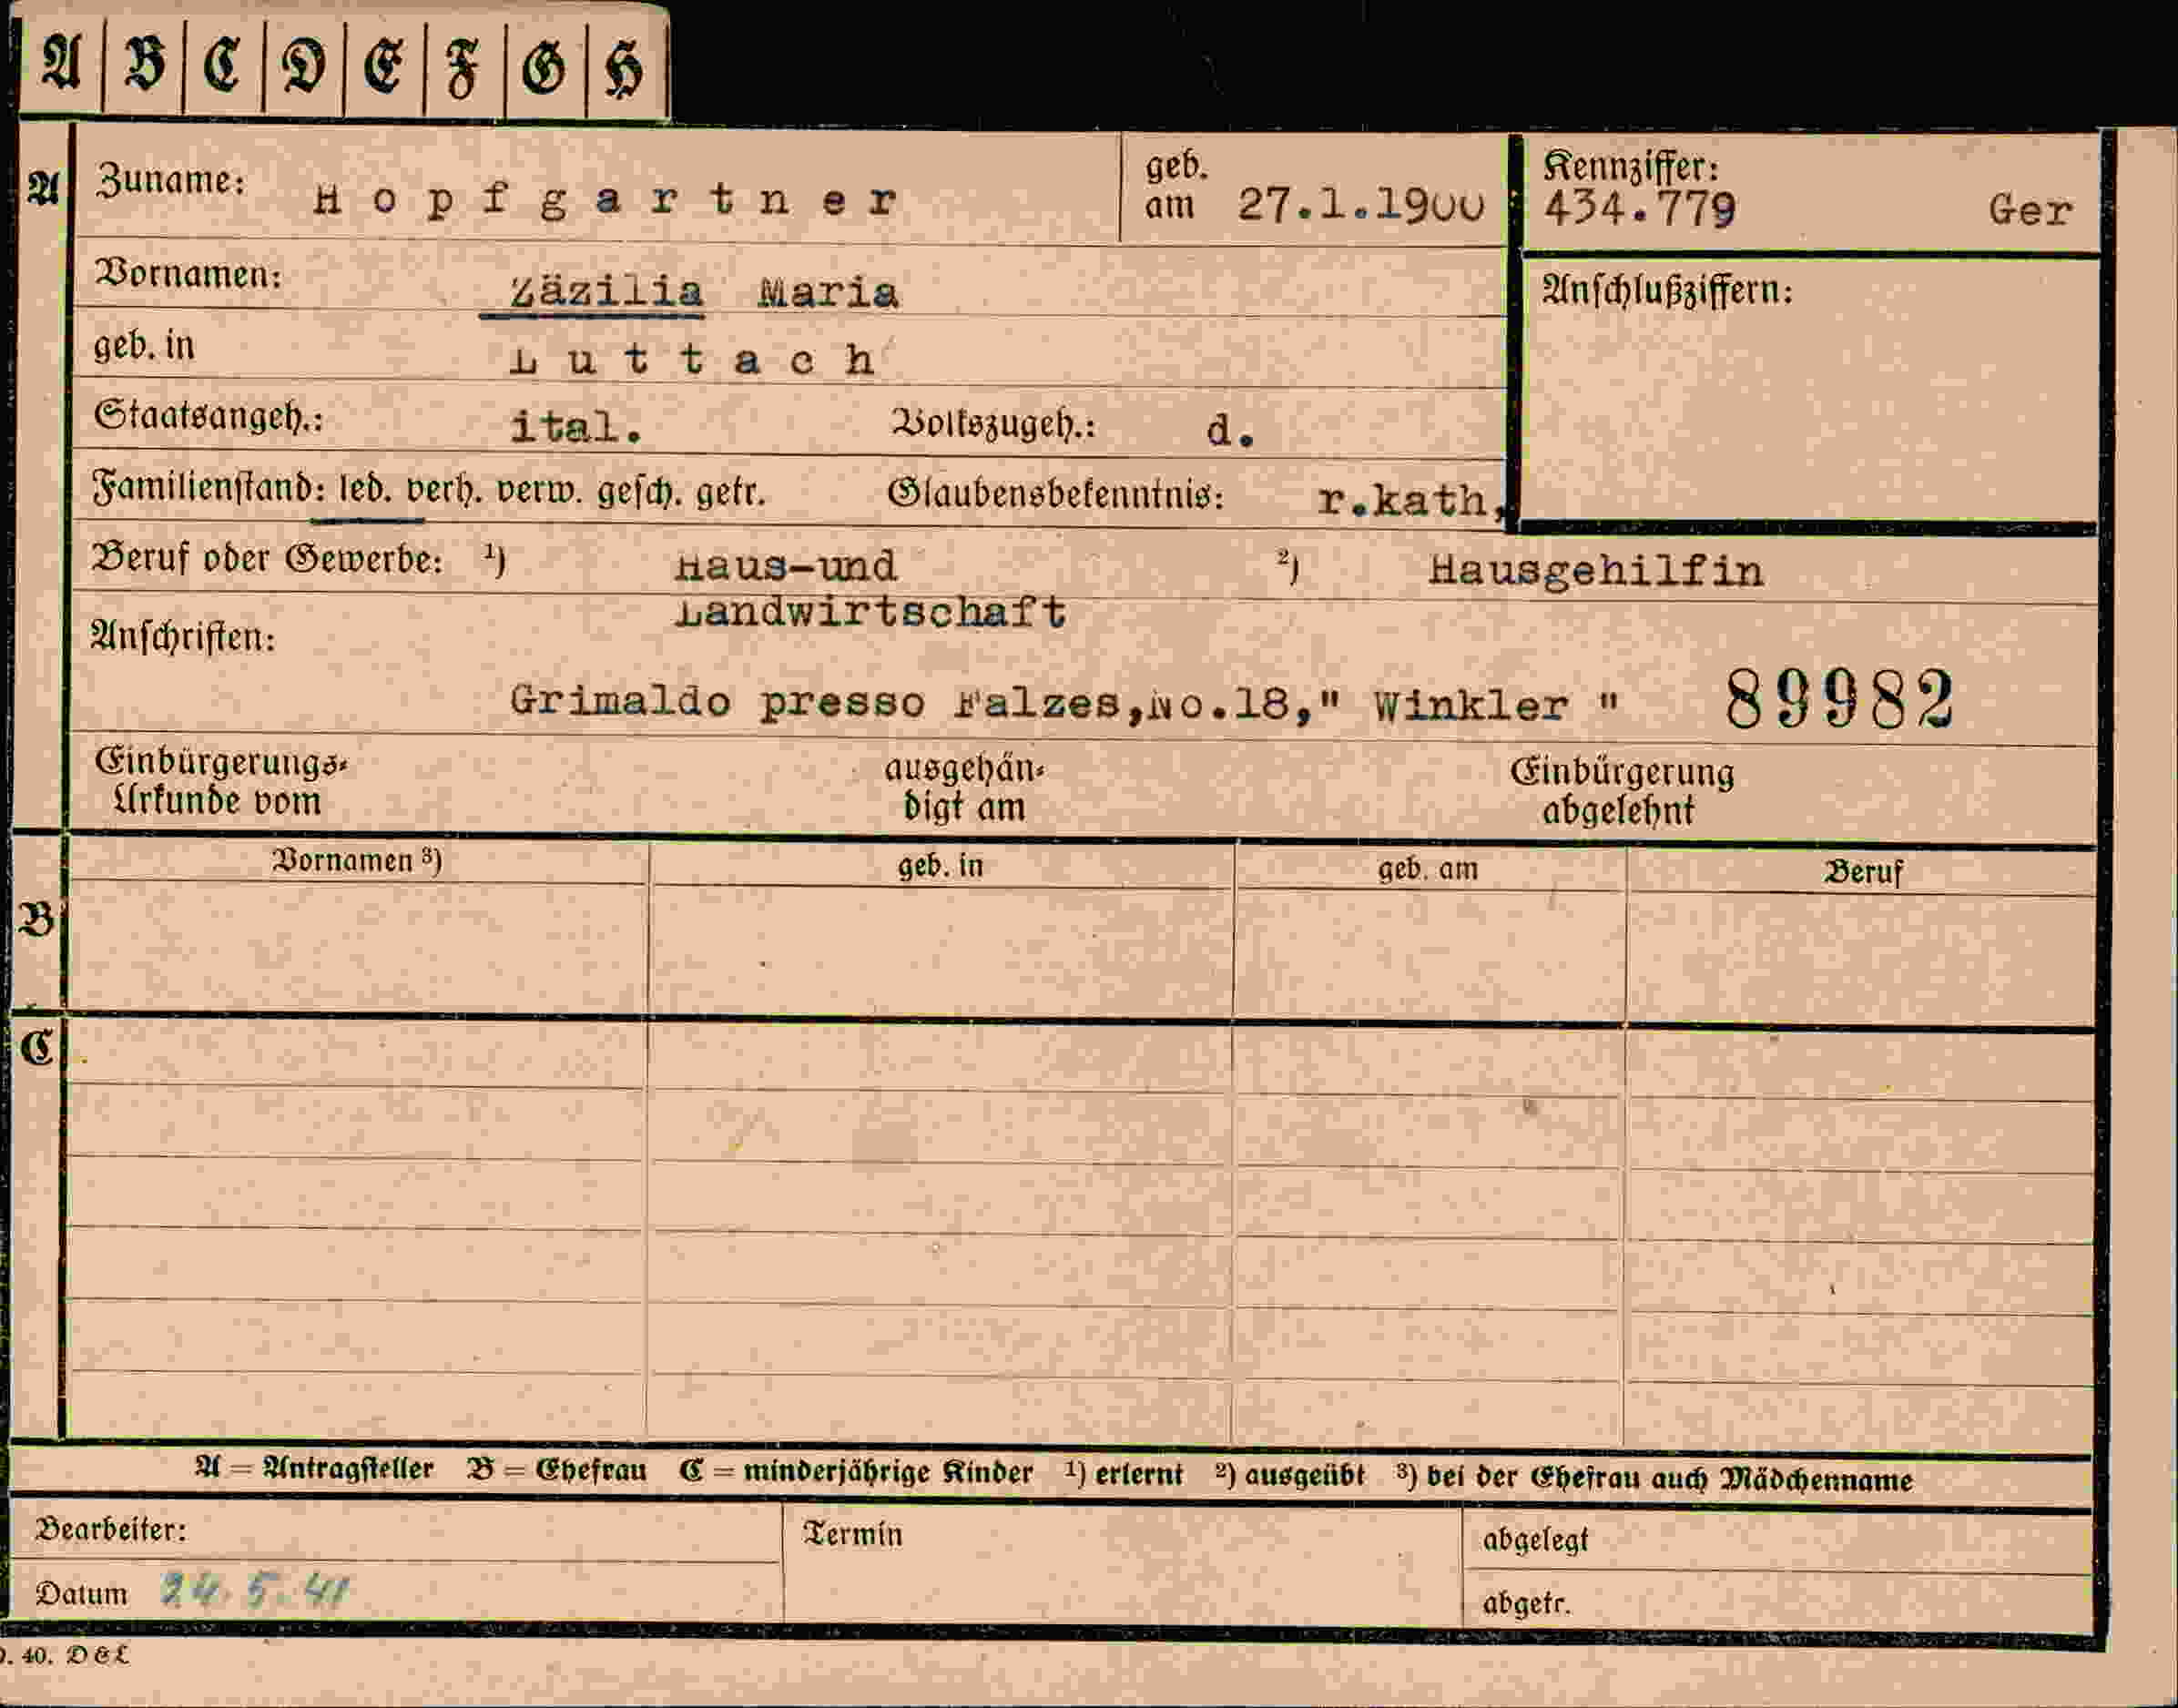 A B C D E F G H
A Zuname: Hopfgartner geb. am 27.1.1900 Kennziffer: 434.779 Ger
Vornamen: Zäzilia Maria Anschlußziffern:
geb. in Luttach
Staatsangeh.: ital. Volkszugeh.: d.
Familienstand: led. verh. verw. gesch. getr. Glaubensbekenntnis: r.kath,
Beruf oder Gewerbe: ¹) Haus-und ²) Hausgehilfin
Landwirtschaft
Anschriften:
Grimaldo presso Falzes,No.18," Winkler " 89982
Einbürgerungs- ausgehän- Einbürgerung
Urkunde vom digt am abgelehnt
Vornamen ³) geb. in geb. am Beruf
B
C
A = Antragsteller B = Ehefrau C = minderjährige Kinder ¹) erlernt ²) ausgeübt ³) bei der Ehefrau auch Mädchenname
Bearbeiter: Termin abgelegt
Datum 24.5.41 abgetr.
40. D & L